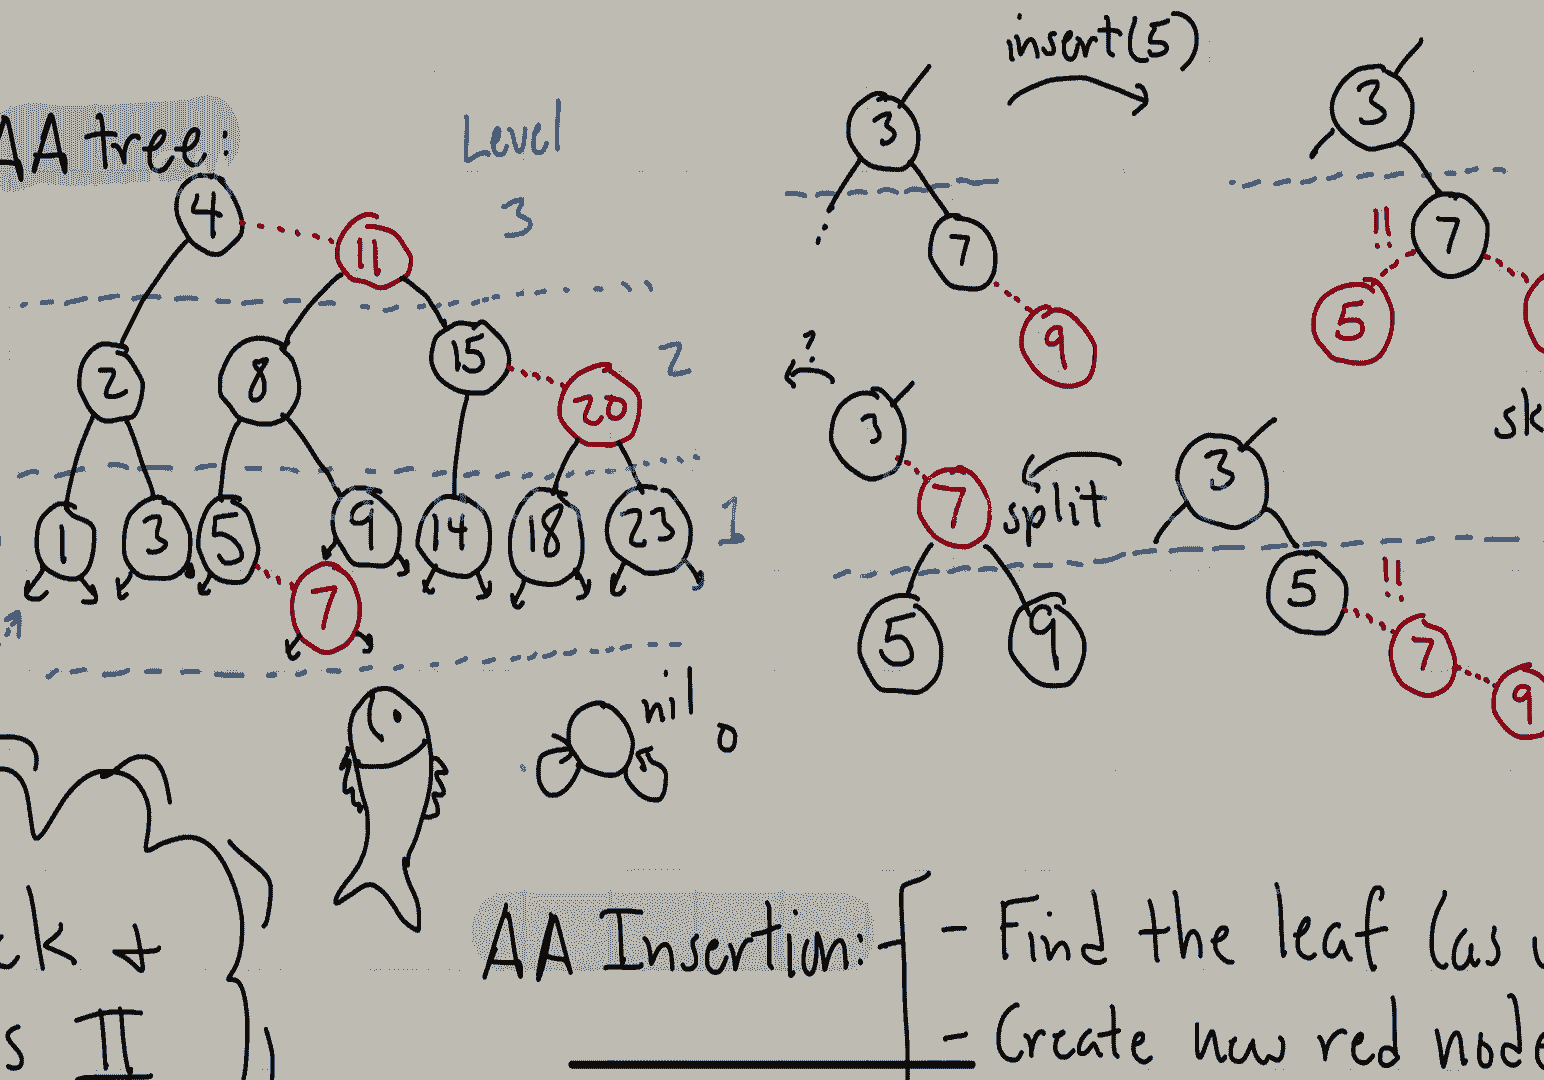 AA tree:
Level
3
2
1
4
11
2
8
15
20
1
3
5
9
14
18
23
7
nil
0
insert(5)
3
7
9
3
!!
7
5
?
3
7
split
5
9
3
5
!!
7
9
ck +
s II
AA Insertion:
- Find the leaf (as
- Create new red node